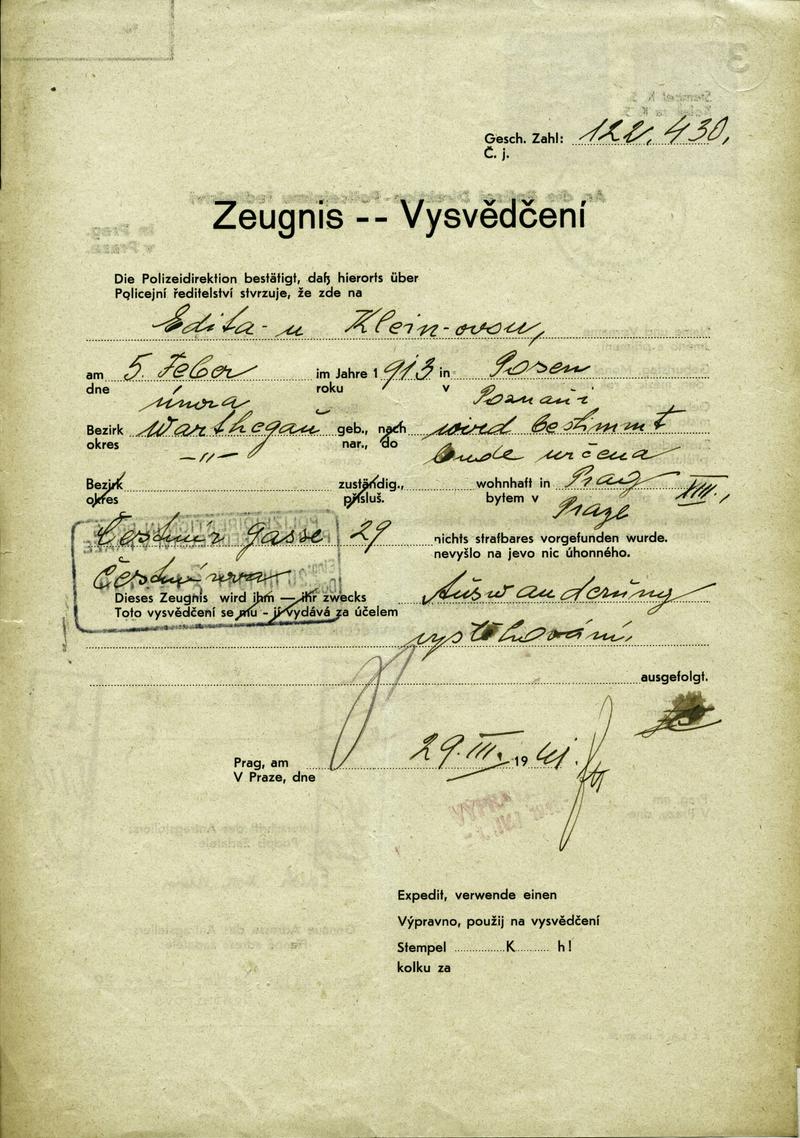 Gesch. Zahl: 122.430,
Č. j.
Zeugnis -- Vysvědčení
Die Polizeidirektion bestätigt, daß hierorts über
Policejní ředitelství stvrzuje, že zde na
Edita-u Klein-ovou,
am 5. Feber im Jahre 1913 in Posen
dne února roku v Poznani
Bezirk Warthegau geb., nach wird bestimmt
okres -"- nar., do bude určena
Bezirk zuständig., wohnhaft in Prag XIII.,
okres přísluš. bytem v Praze
Čestmír Gasse 29 nichts strafbares vorgefunden wurde.
nevyšlo na jevo nic úhonného.
Čestmírova
Dieses Zeugnis wird ihm — ihr zwecks Auswanderung
Toto vysvědčení se mu - jí vydává za účelem
vystěhování,
ausgefolgt.
Prag, am 29. III. 1941.
V Praze, dne
Expedit, verwende einen
Výpravno, použij na vysvědčení
Stempel K h!
kolku za